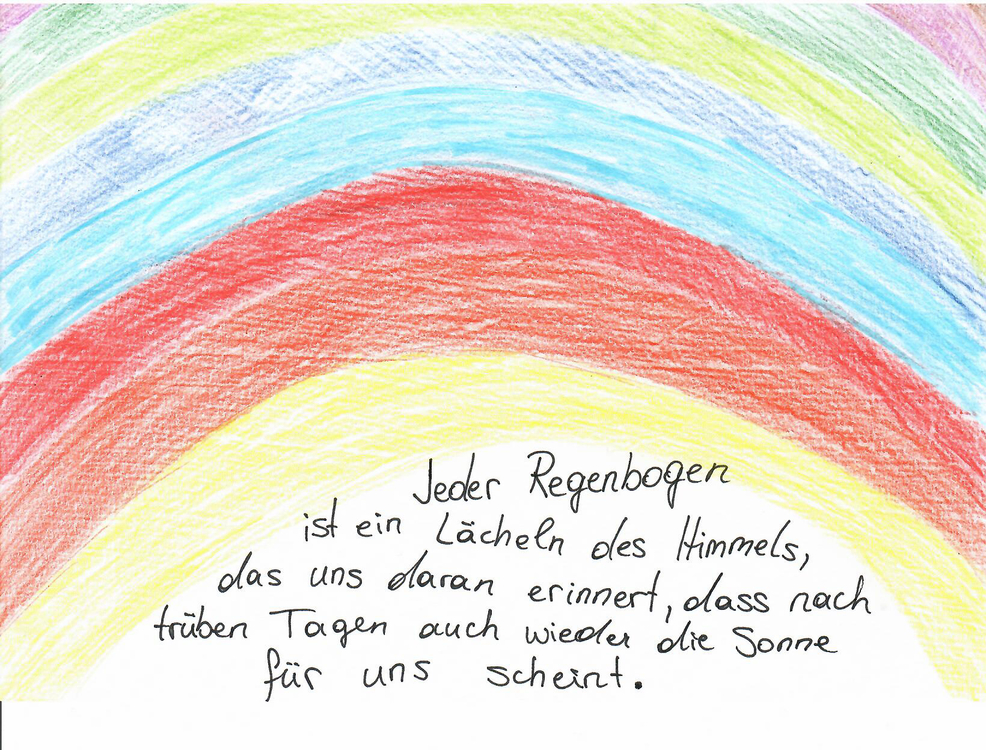 Jeder Regenbogen
ist ein Lächeln des Himmels,
das uns daran erinnert, dass nach
trüben Tagen auch wieder die Sonne
für uns scheint.